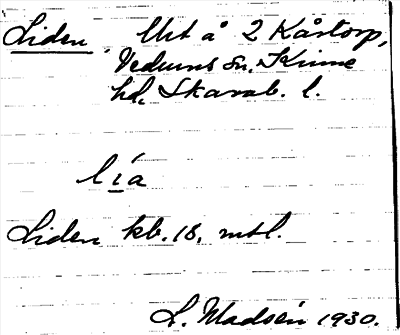 Liden Utt å 2 Kårtorp,
Vedums sn, Kinne
hd, Skarab. l.
lía
Liden kb. 18. mtl.
L. Madsén 1930.